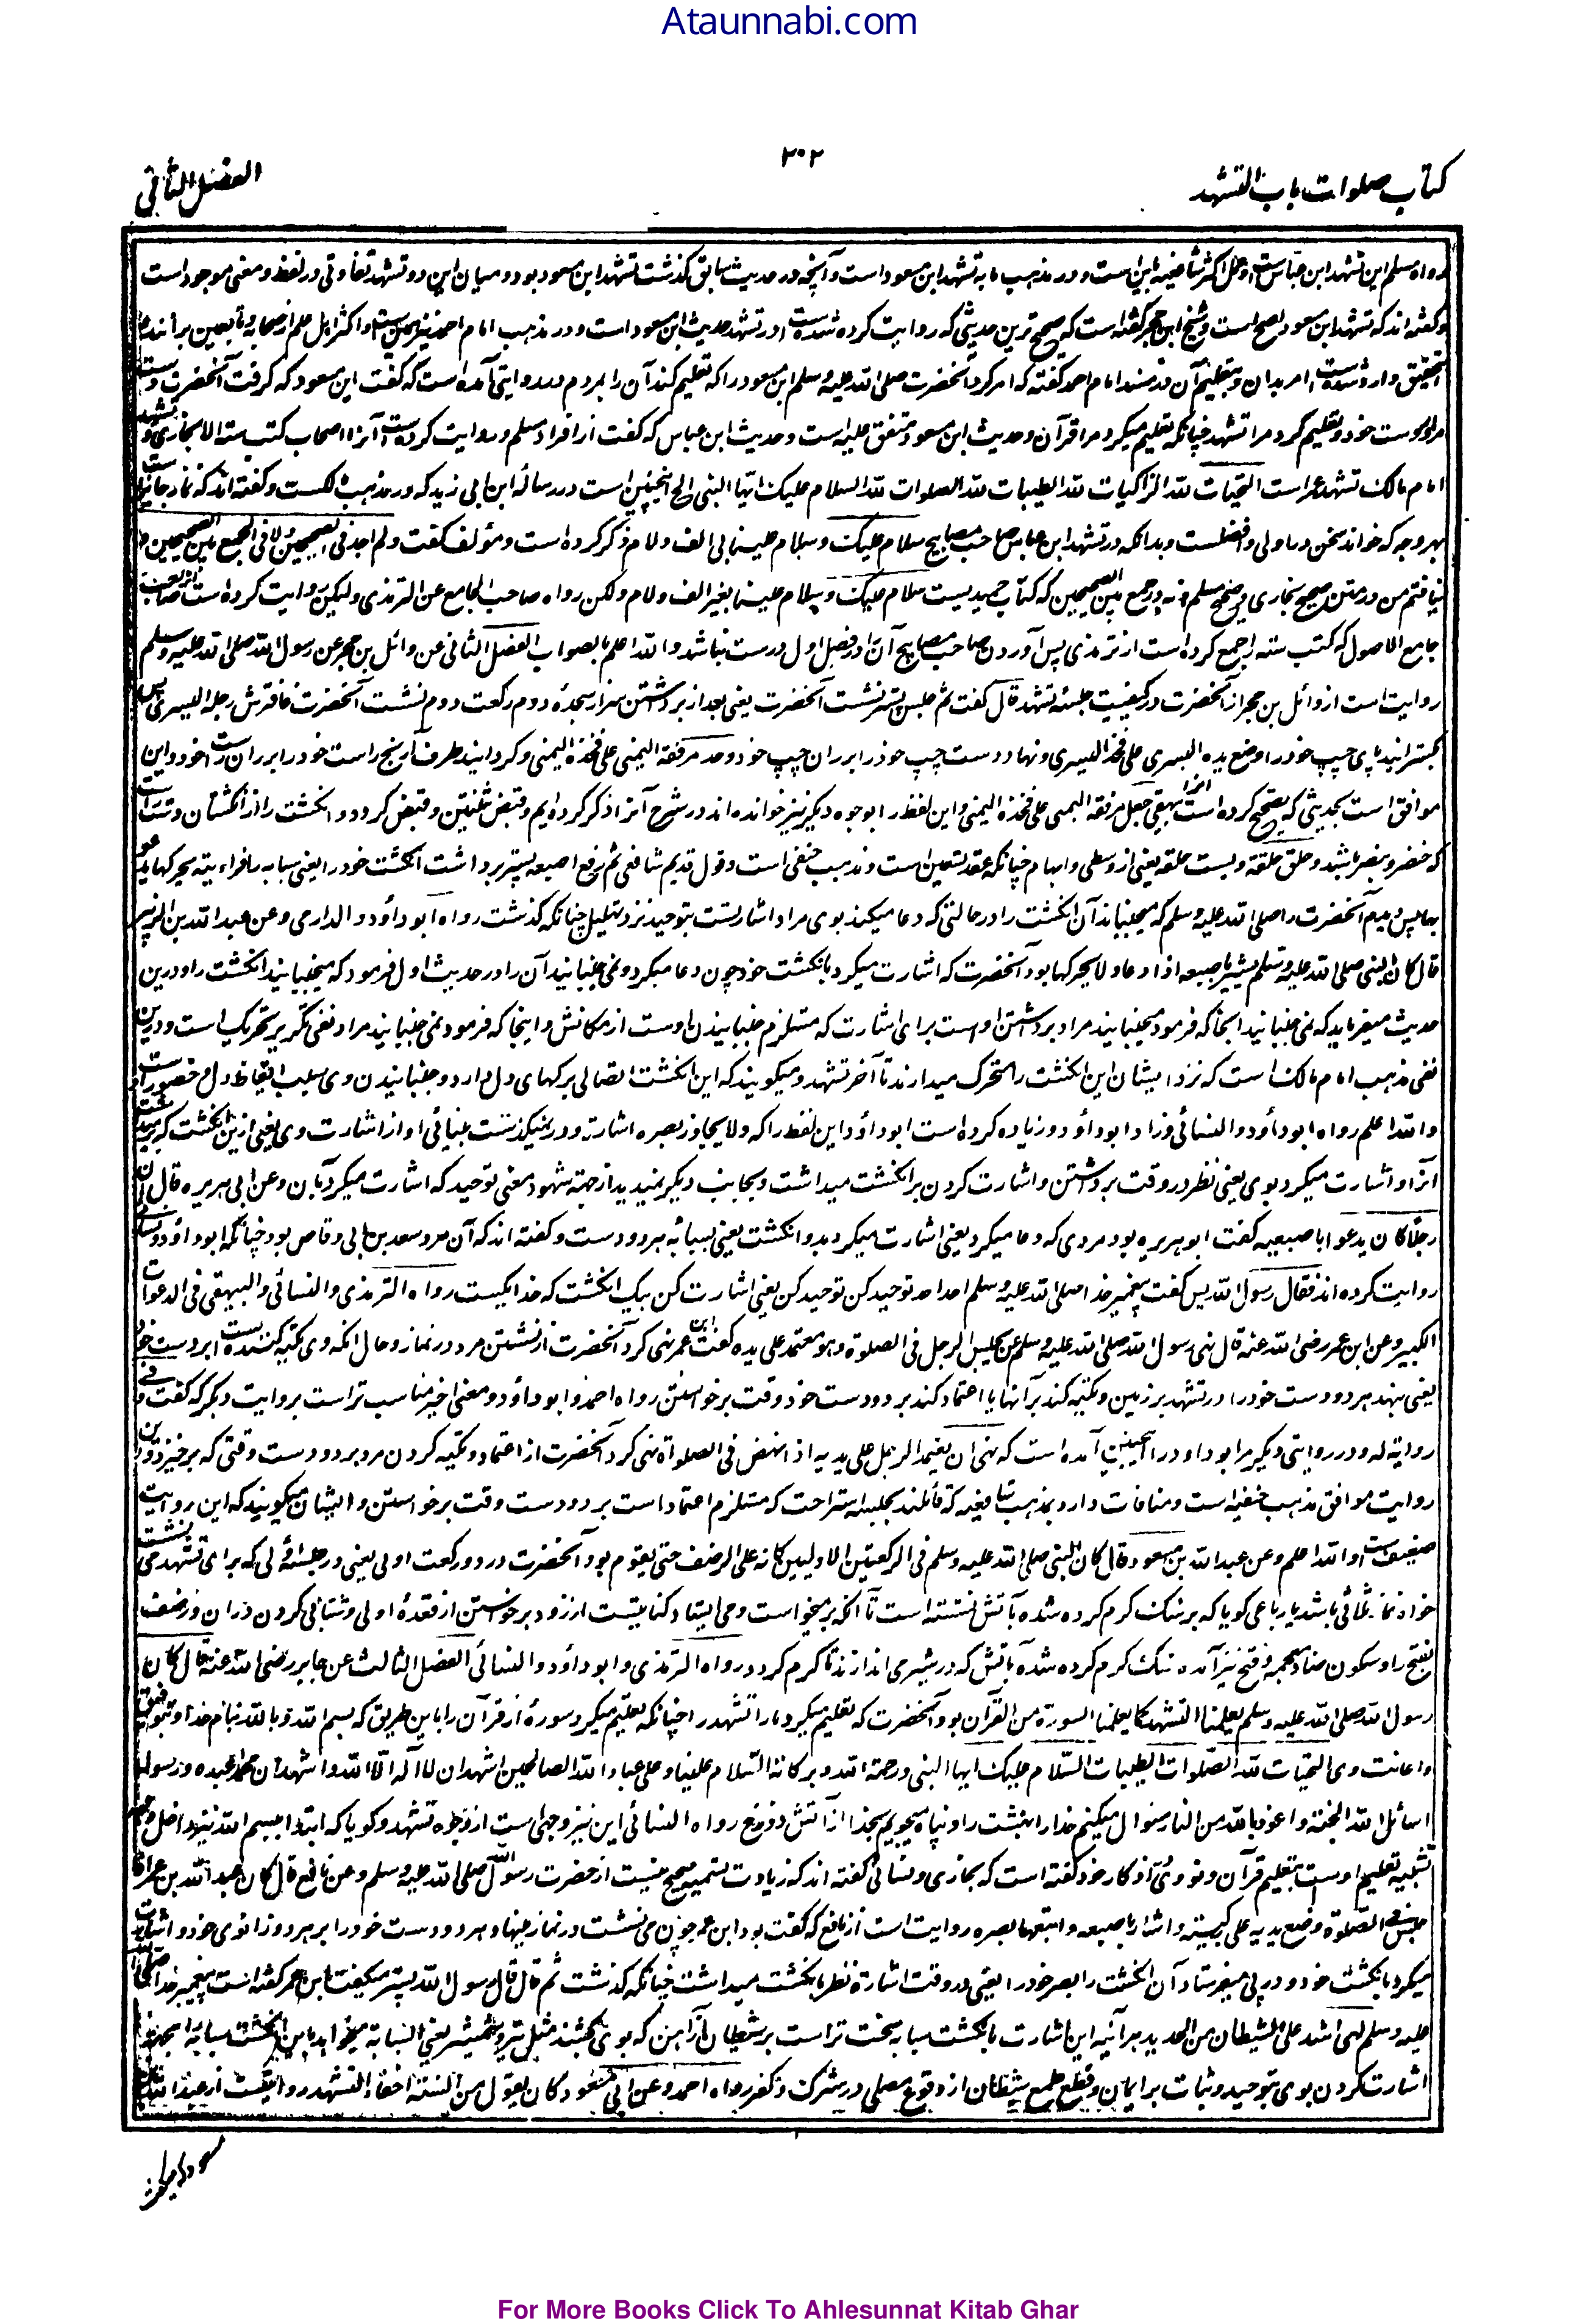 Ataunnabi.com
۳۰۲
کتاب صلوات باب التشهد
الفصل الثانی
رواه مسلم این تشهد ابن عباس است و عمل اکثر شافعیه باین است و در مذهب ما به تشهد ابن مسعود است و آنچه در حدیث سابق گذشت تشهد ابن مسعود بود و میان این دو تشهد تفاوتی در لفظ و معنی موجود است
و گفته اند که تشهد ابن مسعود اصح است و شیخ ابن حجر گفته است که صحیح ترین حدیثی که روایت کرده شده است در تشهد حدیث ابن مسعود است و در مذهب امام احمد نیز همین است و اکثر اهل علم از صحابه و تابعین بر آنند
تحقیق وارد شده است امر بدان و بتعلیم آن در مسند امام احمد گفته که امر کرد آنحضرت صلی الله علیه وسلم ابن مسعود را که تعلیم کند آن را بمردم و در روایتی آمده است که گفت ابن مسعود که گرفت آنحضرت دست
مرا بدست خود و تعلیم کرد مرا تشهد چنانکه تعلیم میکرد مرا قرآن و حدیث ابن مسعود متفق علیه است و حدیث ابن عباس که گفت از افراد مسلم و روایت کرده است آنرا اصحاب کتب سته الا بخاری و تشهد
امام مالک تشهد عمر است التحیات لله الزاکیات لله الطیبات لله الصلوات لله السلام علیک ایها النبی الخ اینچنین است در رساله ابن ابی زید که در مذهب مالک است و گفته اند که نماز جائز است
بهر وجه که خواند سخن در اولی و افضلست و بدانکه در تشهد ابن عباس صاحب مصابیح سلام علیک و سلام علینا بی الف و لام ذکر کرده است و مؤلف گفت ولم اجد فی الصحیحین ولا فی الجمع بین الصحیحین
نیافتم من در متن صحیح بخاری و صحیح مسلم و نه در جمع بین الصحیحین که کتاب حمیدیست سلام علیک و سلام علینا بغیر الف و لام ولکن رواه صاحب الجامع عن الترمذی ولیکن روایت کرده است آنرا صاحب
جامع الاصول که کتب سته را جمع کرده است از ترمذی پس آوردن صاحب مصابیح آن را در فصل اول درست نباشد والله اعلم بالصواب الفصل الثانی عن وائل بن حجر عن رسول الله صلی الله علیه وسلم
روایت است از وائل بن حجر از آنحضرت در کیفیت جلسه تشهد قال گفت ثم جلس پستر نشست آنحضرت یعنی بعد از برداشتن سر از سجده دوم رکعت دوم نشست آنحضرت فافترش رجله الیسری پس
بگسترانید پای چپ خود را و وضع یده الیسری علی فخذه الیسری و نهاد دست چپ خود را بر ران چپ خود و حد مرفقه الیمنی علی فخذه الیمنی و گردانید طرف آرنج راست خود را بر ران راست خود و این
موافق است بحدیثی که تصحیح کرده است آنرا بیهقی جعل مرفقه الیمنی علی فخذه الیمنی و این لفظ را بوجوه دیگر نیز خوانده اند در شرح آنرا ذکر کرده ایم و قبض ثنتین و قبض کرد دو انگشت را از انگشتان دست راست
که خنصر و بنصر باشد و حلق حلقة و بست حلقه یعنی از وسطی و ابهام چنانکه عقد تسعین است و مذهب حنفی است و قول قدیم شافعی ثم رفع اصبعه پستر برداشت انگشت خود را یعنی سبابه را فراءیته یحرکها یدعو
بها پس دیدم آنحضرت را صلی الله علیه وسلم که میجنباند آن انگشت را در حالتی که دعا میکند بوی مراد اشارتست بتوحید نزد تهلیل چنانکه گذشت رواه ابو داؤد و الدارمی وعن عبد الله بن الزبیر
قال کان النبی صلی الله علیه وسلم یشیر باصبعه اذا دعا ولا یحرکها بود آنحضرت که اشارت میکرد بانگشت خود چون دعا میکرد و نمی جنبانید آن را در حدیث اول فرمود که میجنبانید انگشت را و درین
حدیث میفرماید که نمی جنبانید اینجا که فرمود میجنبانید مراد برداشتن اوست برای اشارت که مستلزم جنبانیدن اوست از مکانش و اینجا که فرمود نمی جنبانید مراد نفی تکریر تحریک است و درین
نفی مذهب امام مالک است که نزد ایشان این انگشت را متحرک میدارند تا آخر تشهد و میگویند که این انگشت اتصالی برگهای دل دارد و جنبانیدن وی سبب ایقاظ دل و حضور اوست
والله اعلم رواه ابو داؤد و النسائی وزاد ابو داؤد و زیاده کرده است ابو داؤد این لفظ را که ولا یجاوز بصره اشارته و در نمیگذشت بینائی او از اشارت وی یعنی از این انگشت که برمیداشت
آنرا و اشارت میکرد بوی یعنی نظر در وقت برداشتن و اشارت کردن بر انگشت میداشت و بجانب دیگر نمیدید از جهة شهود معنی توحید که اشارت میکرد بآن وعن ابی هریره قال ان
رجلا کان یدعو باصبعیه گفت ابو هریره بود مردی که دعا میکرد یعنی اشارت میکرد بدو انگشت یعنی بسبابه هر دو دست و گفته اند که آن مرد سعد بن ابی وقاص بود چنانکه ابو داؤد و نسائی
روایت کرده اند فقال رسول الله پس گفت پیغمبر خدا صلی الله علیه وسلم احد احد توحید کن توحید کن یعنی اشارت کن بیک انگشت که خدا یکیست رواه الترمذی و النسائی و البیهقی فی الدعوات
الکبیر وعن ابن عمر رضی الله عنه قال نهی رسول الله صلی الله علیه وسلم ان یجلس الرجل فی الصلوة وهو معتمد علی یده گفت ابن عمر نهی کرد آنحضرت از نشستن مرد در نماز و حال آنکه وی تکیه کننده است بر دست خود
یعنی بنهد هر دو دست خود را در تشهد بر زمین و تکیه کند بر آنها یا اعتماد کند بر دو دست خود وقت برخواستن رواه احمد و ابو داؤد و معنی اخیر مناسب تر است بروایت دیگر که گفت و فی
روایة له و در روایتی دیگر مر ابو داود را اینچنین آمده است که نهی ان یعتمد الرجل علی یدیه اذا نهض فی الصلواة نهی کرد آنحضرت از اعتماد و تکیه کردن مرد بر دو دست وقتی که برخیزد و این
روایت موافق مذهب حنفیه است و منافات دارد بمذهب شافعیه که قائلند بجلسه استراحت که مستلزم اعتماد است بر دو دست وقت برخواستن و ایشان میگویند که این روایت
ضعیف است والله اعلم وعن عبد الله بن مسعود قال کان النبی صلی الله علیه وسلم فی الرکعتین الاولیین کانه علی الرضف حتی یقوم بود آنحضرت در دو رکعت اولی یعنی در جلسه اولی که برای تشهد می نشست
خواه نماز ثلاثی باشد یا رباعی گویا که بر سنگ گرم کرده شده بآتش نشسته است تا آنکه برمیخواست و می ایستاد کنایتست از زود برخواستن از قعده اولی و شتابی کردن در آن و رضف
بفتح را و سکون ضاد معجمه و فتح نیز آمده سنگ گرم کرده شده بآتش که در شیر می اندازند تا گرم گردد رواه الترمذی و ابو داؤد و النسائی الفصل الثالث عن جابر رضی الله عنه قال کان
رسول الله صلی الله علیه وسلم یعلمنا التشهد کما یعلمنا السورة من القرآن بود آنحضرت که تعلیم میکرد ما را تشهد را چنانکه تعلیم میکرد سورهٔ از قرآن را باین طریق که بسم الله وبالله بنام خدا و بتوفیق
و اعانت وی التحیات لله الصلوات الطیبات السلام علیک ایها النبی ورحمة الله وبرکاته السلام علینا وعلی عباد الله الصالحین اشهد ان لا اله الا الله واشهد ان محمدا عبده ورسوله
اسائل الله الجنة واعوذ بالله من النار سوال میکنم خدا را بهشت را و پناه میجویم بخدا از آتش دوزخ رواه النسائی این نیز وجهی است از وجوه تشهد و گویا که ابتدا ببسم الله نیز داخل وجه
تشبیه تعلیم اوست بتعلیم قرآن و نووی در اذکار خود گفته است که بخاری و نسائی گفته اند که زیادت تسمیه صحیح نیست از حضرت رسول الله صلی الله علیه وسلم وعن نافع قال کان عبد الله بن عمر اذا
جلس فی الصلوة وضع یدیه علی رکبتیه واشار باصبعه واتبعها بصره روایت است از نافع که گفت بود ابن عمر چون می نشست در نماز مینهاد هر دو دست خود را بر هر دو زانوی خود و اشارت
میکرد بانگشت خود و در پی میفرستاد آن انگشت را بصر خود را یعنی در وقت اشارة نظر بانگشت میداشت چنانکه گذشت ثم قال قال رسول الله پستر میگفت ابن عمر گفته است پیغمبر خدا صلی الله
علیه وسلم لهی اشد علی الشیطان من الحدید هر آینه این اشارت بانگشت سبابه سخت تر است بر شیطان از آهن که بوی کشند مثل تیر و شمشیر یعنی السبابة میخواهد باین انگشت سبابه را
اشارت کردن بوی بتوحید و ثبات بر ایمان و قطع طمع شیطان از وقوع مصلی در شرک و کفر رواه احمد وعن ابن مسعود کان یقول من السنة اخفاء التشهد روایتست از عبد الله
مسعود
For More Books Click To Ahlesunnat Kitab Ghar